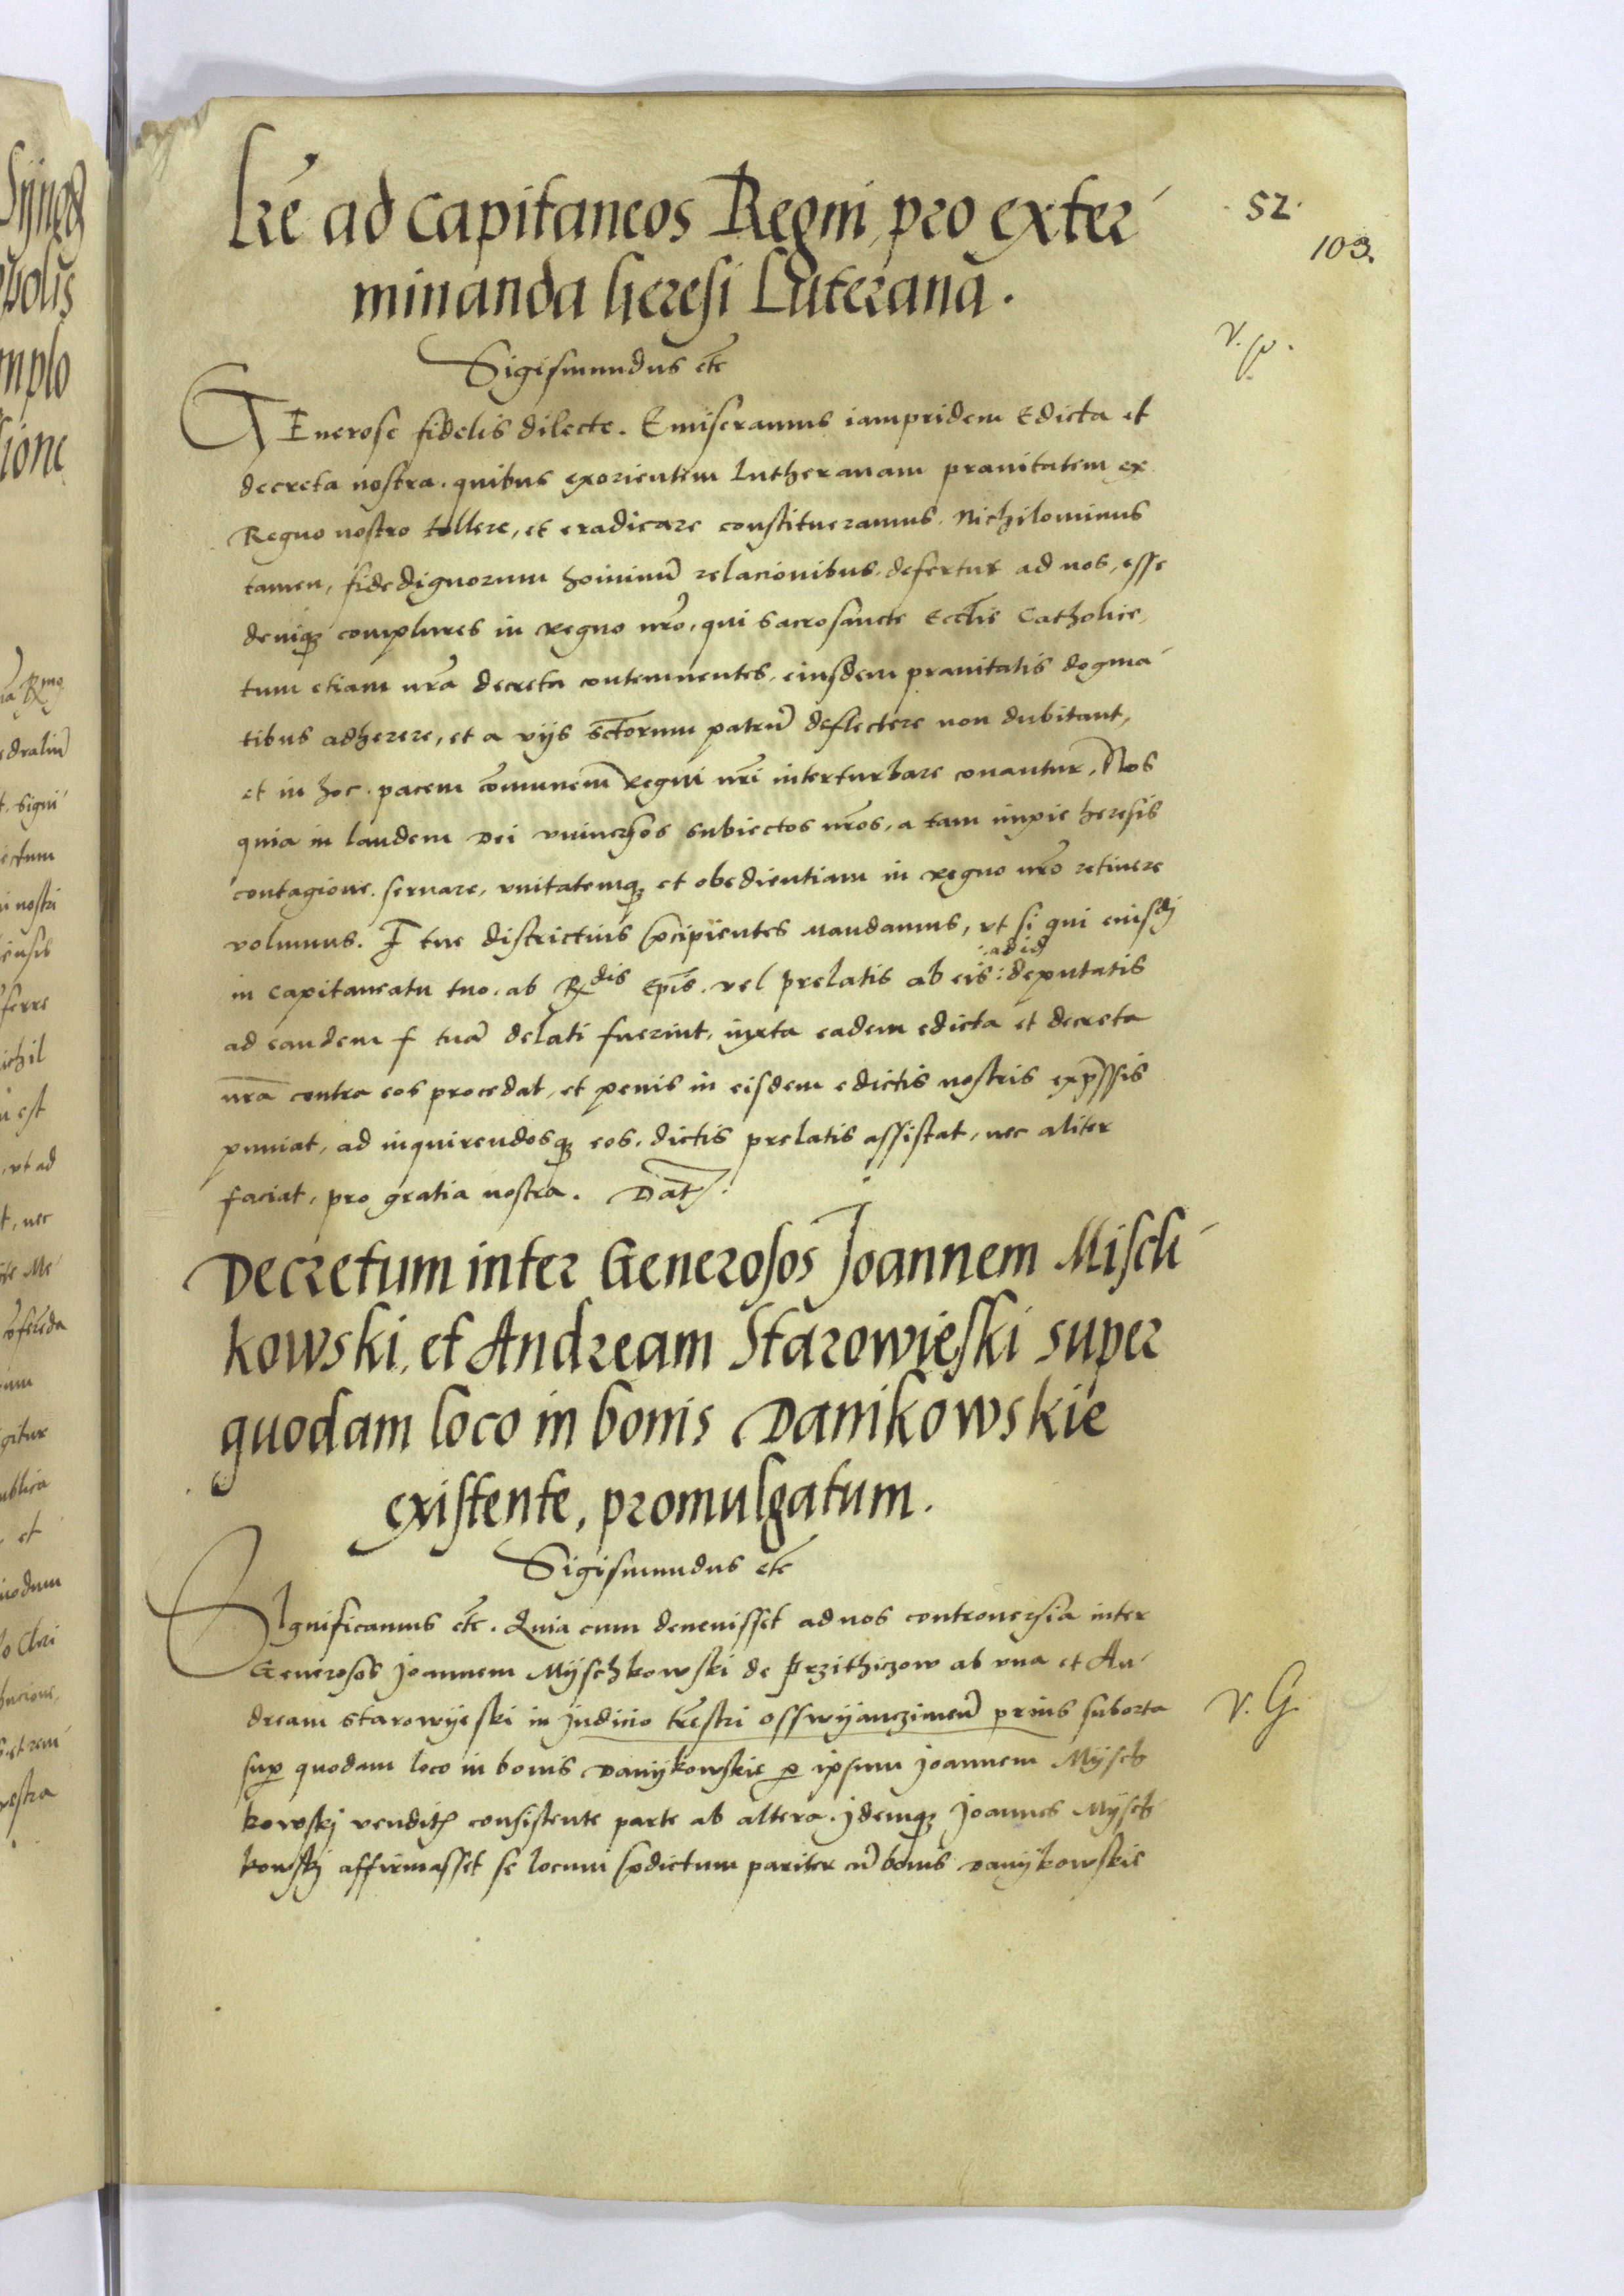 52.
103.
Lrē ad capitaneos Regni pro exter-
minanda heresi Luterana.
V. p.
Sigismundus etc̄
GEnerose fidelis dilecte. Emiseramus iampridem Edicta et
decreta nostra. quibus exorientem Lutheranam prauitatem ex
Regno nostro tollere, et eradicare constitueramus. Nichilominus
tamen, fidedignorum hominū relacionibus. defertur ad nos, esse
deniqꝫ complures in regno nr̄o, qui sacrosancte Eccl̄ie Catholice,
tum etiam nr̄a decreta contemnentes, eiusdem prauitatis dogma-
tibus adherere, et a vijs sctorum patrū deflectere non dubitant,
et in hoc. pacem cōmunem regni nr̄i interturbare conantur. Nos
quia in laudem Dei vniuersos subiectos nr̄os, a tam impie heresis
contagione. seruare, vnitatemqꝫ et obedientiam in regno nr̄o retinere
volumus. F tue districtius p̄cipientes mandamus, vt si qui eiusdj
in capitaneatu tuo. ab R^dis Ep̄is. vel prelatis ab eis :ad id: deputatis
ad eandem f tuā delati fuerint, iuxta eadem edicta et decreta
nr̄a contra eos procedat, et penis in eisdem edictis nostris exp̄ssis
puniat, ad inquirendosqꝫ eos. dictis prelatis assistat, nec aliter
faciat, pro gratia nostra. Dat̄.
Decretum inter Generosos Joannem Misch-
kowski, et Andream Starowieski super
quodam loco in bonis Danikowskie
existente, promulgatum.
Sigismundus etc̄
SIgnificamus etc̄. Quia cum deuenisset ad nos controuersia inter
Generosos Joannem Myschkowski de Przithiczow ab vna et An-
dream Starowyeski in Judicio tr̄estri Osswyanczimen̄ prius suborta
V. G.
sup̱ quodam loco in bonis Danykowskie ꝑ ipsum Joannem Mysch-
kowskj vendit̄ consistente parte ab altera. Jdemqꝫ Joannes Mysch-
kowskj affirmasset se locum p̄dictum pariter cū bonis Danykowskie